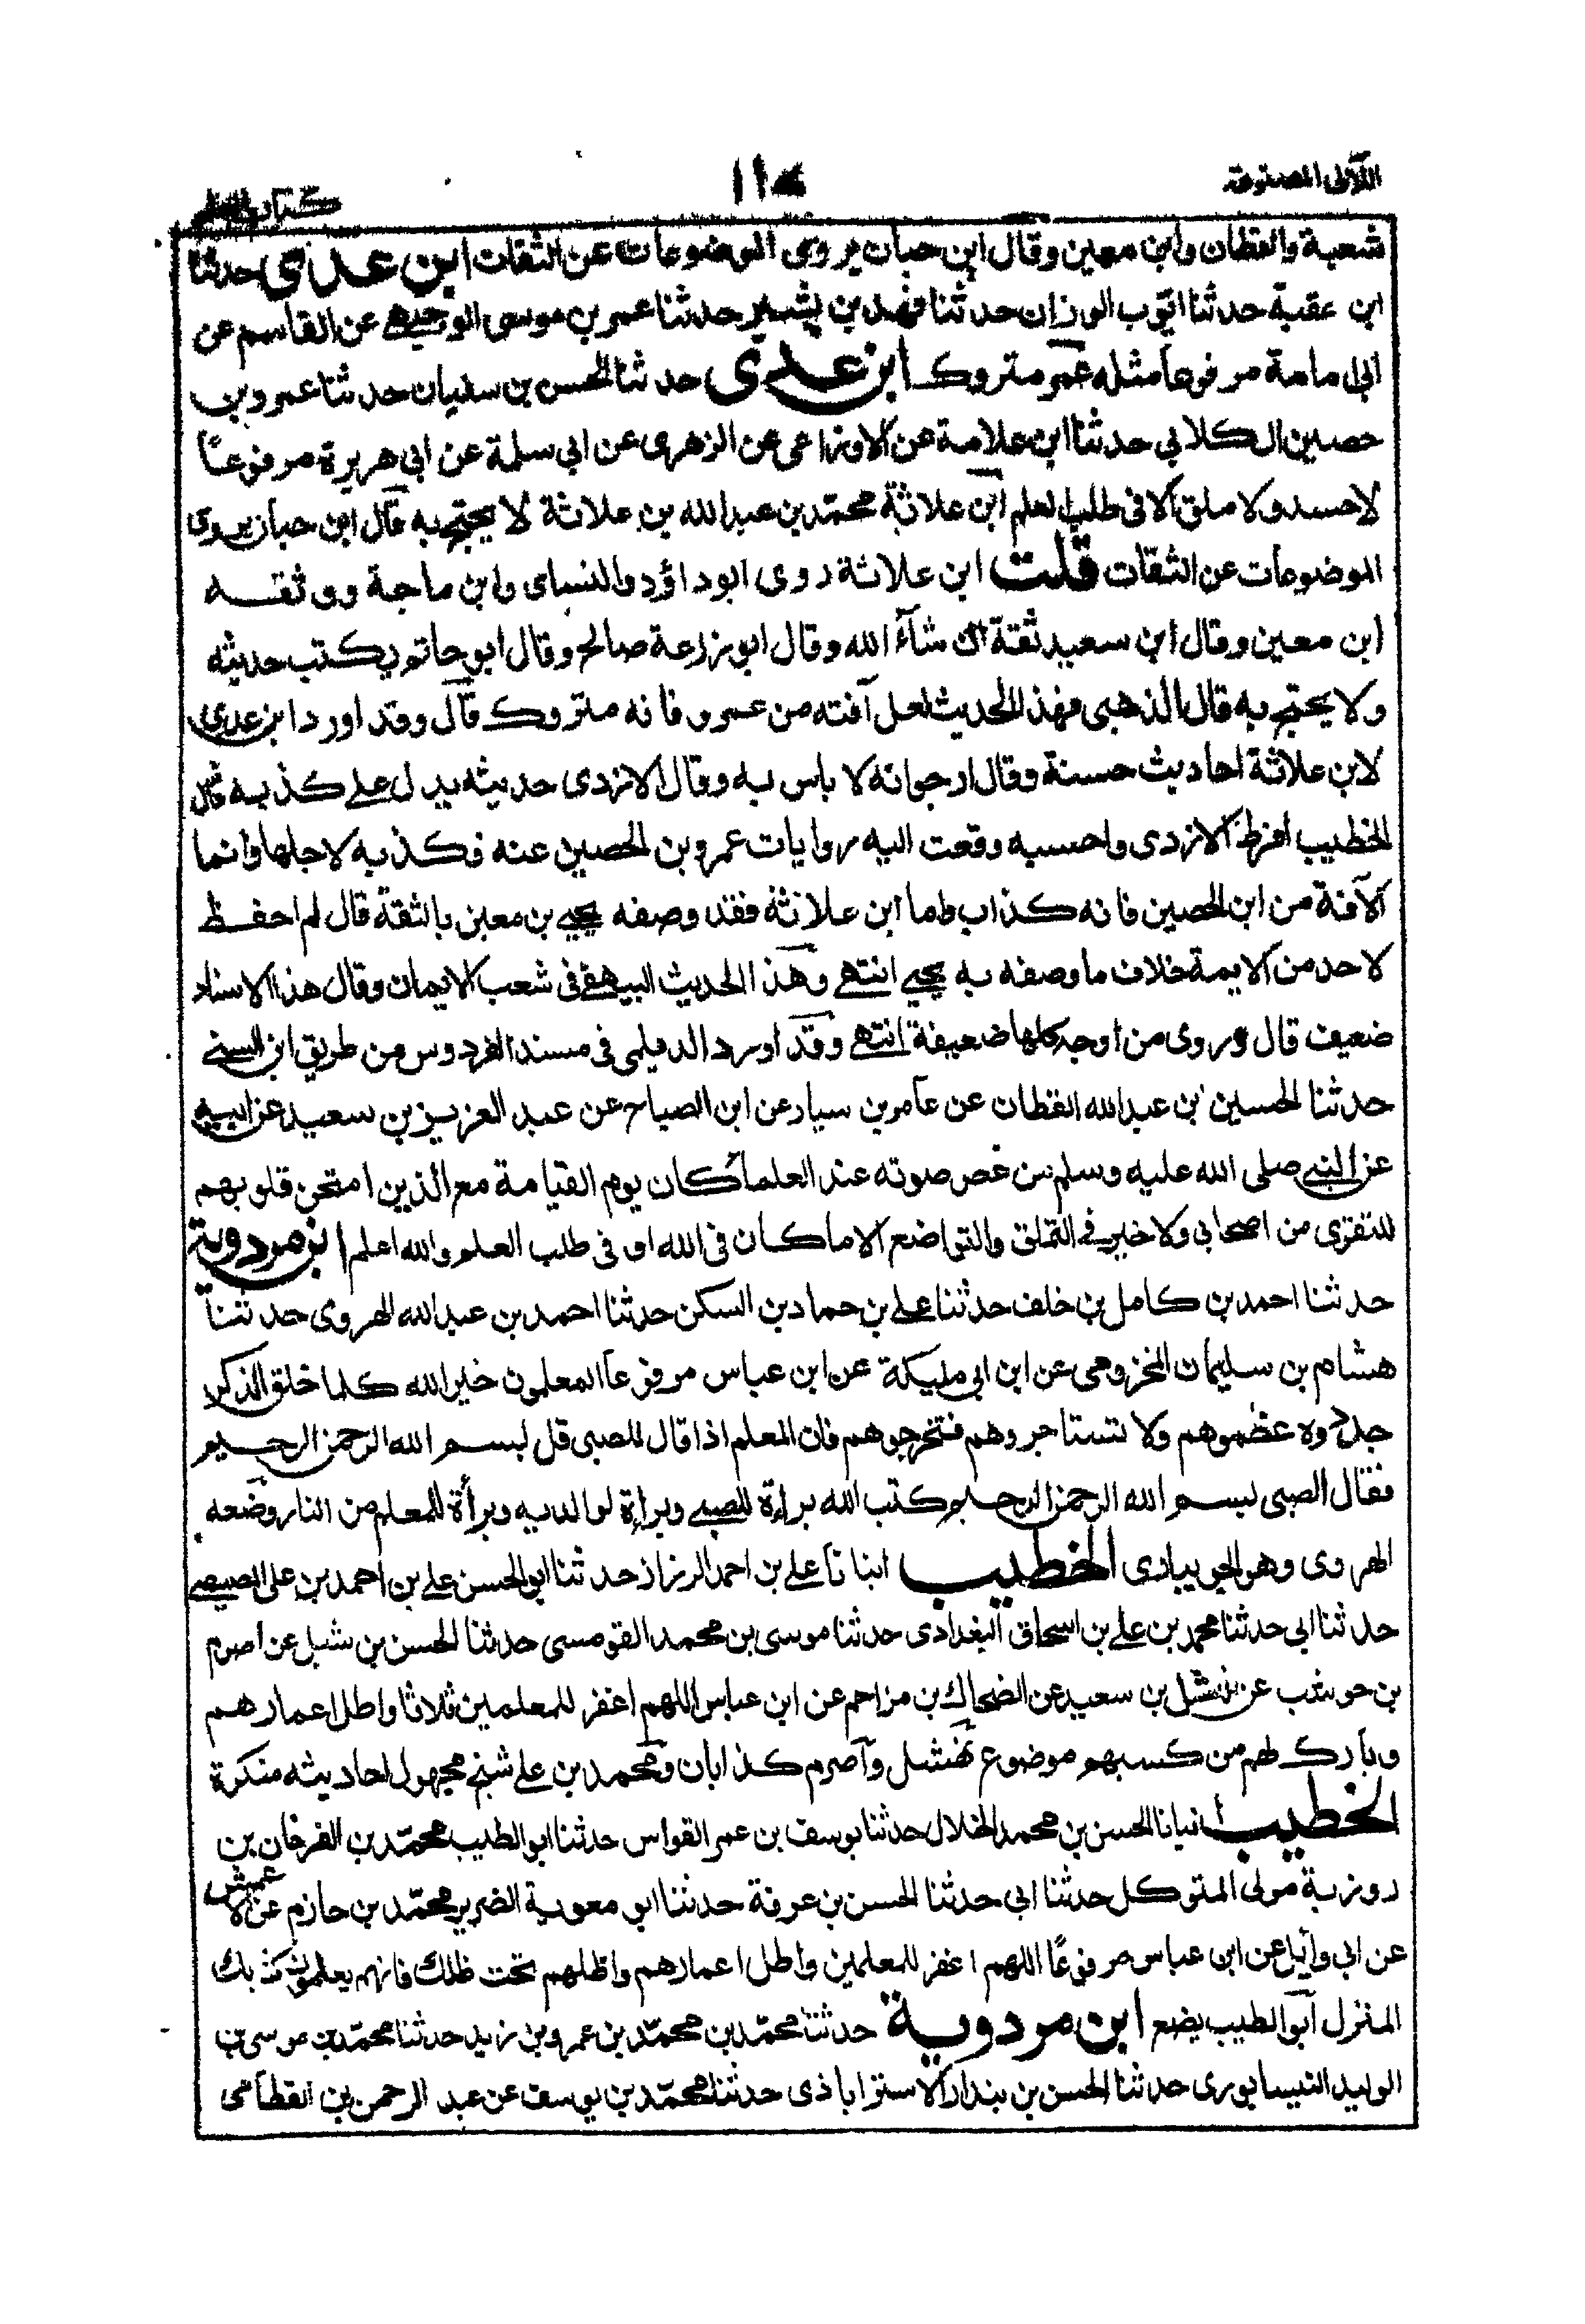 اللآلى المصنوعة
كتاب العلم
شعبة والقطان وابن معين وقال ابن حبان يروى الموضوعات عن الثقات ابن عدى حدثنا
ابن عقبة حدثنا ايوب الوزان حدثنا فهد بن بشير حدثنا عمر بن موسى الوجيهى عن القاسم عن
ابى امامة مرفوعا مثله عمر متروك ابن عدى حدثنا الحسن بن سفيان حدثنا عمرو بن
حصين الكلابي حدثنا ابن علامة عن الاوزاعى عن الزهرى عن ابي سلمة عن ابي هريرة مرفوعًا
لا حسد ولا ملق الا فى طلب العلم ابن علاثة محمّد بن عبد الله بن علاثة لا يحتج به قال ابن حبان يروى
الموضوعات عن الثقات قلت ابن علاثة روى ابو داؤد والنساى وابن ماجة ووثقه
ابن معين وقال ابن سعيد ثقة ان شآء الله وقال ابو زرعة صالح وقال ابو حاتم يكتب حديثه
ولا يحتج به قال الذهبى فهذا الحديث لعل آفته من عمرو فانه متروك قال وقد اورد ابن عدى
لابن علاثة احاديث حسنة وقال ارجو انه لا باس به وقال الازدى حديثه يدل على كذبه قال
الخطيب افرط الازدى واحسبه وقعت اليه روايات عمرو بن الحصين عنه فكذبه لاجلها وانما
الآفة من ابن الحصين فانه كذاب واما ابن علاثة فقد وصفه يحيى بن معين بالثقة قال لم احفظ
لاحد من الايمة خلاف ما وصفه به يحيى انتهى وهذا الحديث البيهقى فى شعب الايمان وقال هذا الاسناد
ضعيف قال وروى من اوجه كلها ضعيفة انتهى وقد اورد الديلمى فى مسند الفردوس من طريق ابن السنى
حدثنا الحسين بن عبد الله القطان عن عامر بن سيار عن ابن الصياح عن عبد العزيز بن سعيد عن ابيه
عن النبى صلى الله عليه وسلم من غص صوته عند العلماء كان يوم القيامة مع الذين امتحن قلوبهم
للتقوى من اصحابى ولا خير فى التملق والتواضع الا ما كان فى الله او فى طلب العلم والله اعلم ابن مردوية
حدثنا احمد بن كامل بن خلف حدثنا على بن حماد بن السكن حدثنا احمد بن عبد الله الهروى حدثنا
هشام بن سليمان المخزومى عن ابن ابى مليكة عن ابن عباس مرفوعا المعلمون خير الله كلما خلق الذكر
جددوه عظموهم ولا تستاجروهم فتخرجوهم فان المعلم اذا قال للصبى قل بسم الله الرحمن الرحيم
فقال الصبى بسم الله الرحمن الرحيم كتب الله براءة للصبى وبراءة لوالديه وبرأة للمعلم من النار وضعه
الهروى وهو الجويبادى الخطيب انبانا على بن احمد الرزاز حدثنا ابو الحسن على بن احمد بن على المصيصى
حدثنا ابى حدثنا محمد بن على بن اسحاق البغدادى حدثنا موسى بن محمد القومسى حدثنا الحسن بن شبل عن اصرم
بن حوشب عن نهشل بن سعيد عن الضحاك بن مزاحم عن ابن عباس اللهم اغفر للمعلمين ثلاثا واطل اعمارهم
وبارك لهم من كسبهم موضوع نهشل وآصرم كذابان ومحمد بن على شيخ مجهول احاديثه منكرة
الخطيب انبانا الحسن بن محمد الخلال حدثنا يوسف بن عمر القواس حدثنا ابو الطيب محمّد بن الفرخان بن
روزبة مولى المتوكل حدثنا ابى حدثنا الحسن بن عرفة حدثنا ابو معوية الضرير محمّد بن حازم عن الاعمش
عن ابى وايل عن ابن عباس مرفوعًا اللهم اغفر للمعلمين واطل اعمارهم واظلهم تحت ظلك فانهم يعلمون كتابك
المنزل ابو الطيب يضع ابن مردوية حدثنا محمّد بن محمّد بن عمرو بن زيد حدثنا محمّد بن موسى بن
الوليد النيسابورى حدثنا الحسن بن بندار الاستراباذى حدثنا محمّد بن يوسف عن عبد الرحمن بن القطامى